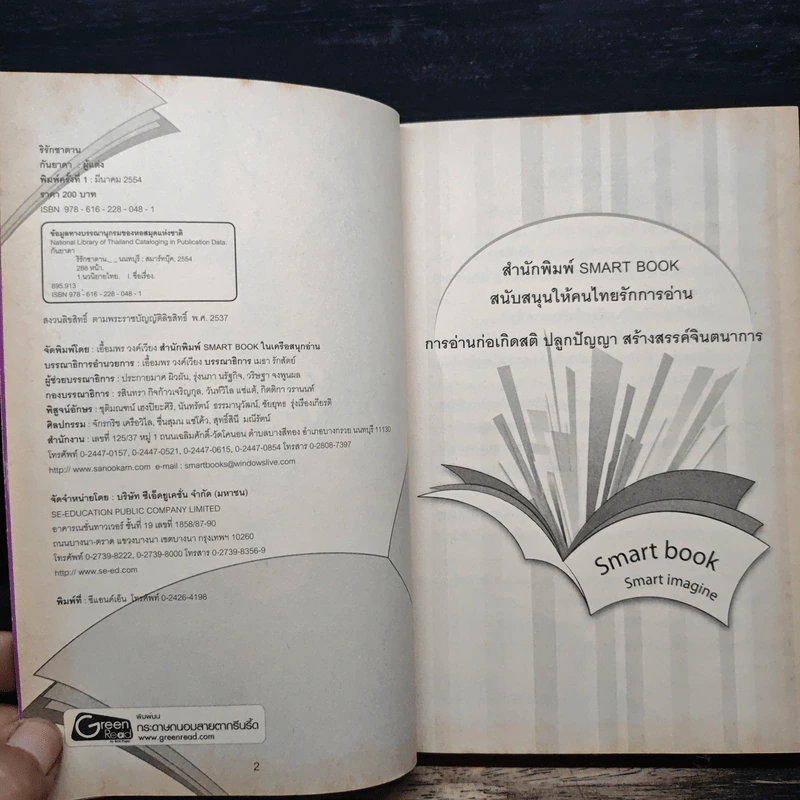 ริรักซาตาน
กันยาดา : ผู้แต่ง
พิมพ์ครั้งที่ 1 : มีนาคม 2554
ราคา 200 บาท
ISBN 978 - 616 - 228 - 048 - 1
ข้อมูลทางบรรณานุกรมของหอสมุดแห่งชาติ
National Library of Thailand Cataloging in Publication Data.
กันยาดา
ริรักซาตาน._ _ นนทบุรี : สมาร์ทบุ๊ค, 2554
288 หน้า.
1.นวนิยายไทย. I. ชื่อเรื่อง.
895.913
ISBN 978 - 616 - 228 - 048 - 1
สงวนลิขสิทธิ์ ตามพระราชบัญญัติลิขสิทธิ์ พ.ศ. 2537
จัดพิมพ์โดย : เอื้อมพร วงค์เวียง สำนักพิมพ์ SMART BOOK ในเครือสนุกอ่าน
บรรณาธิการอำนวยการ : เอื้อมพร วงค์เวียง บรรณาธิการ เมธา รักสัตย์
ผู้ช่วยบรรณาธิการ : ประกายมาศ ผิวมัน, รุ่งนภา นรัฐกิจ, วริษฐา จงพูนผล
กองบรรณาธิการ : รสินทรา กิจก้าวเจริญกุล, วันทวิไล แซ่แต้, กิตติกา วรานนท์
พิสูจน์อักษร : ชุติมณฑน์ เฮงปิยะศิริ, นันทรัตน์ ธรรมานุวัฒน์, ชัยยุทธ รุ่งเรืองเกียรติ
ศิลปกรรม : จักรกริช เครือวิไล, ชื่นสุมน แซ่โค้ว, สุทธิ์สินี มณีรัตน์
สำนักงาน : เลขที่ 125/37 หมู่ 1 ถนนเฉลิมศักดิ์-วัดโคนอน ตำบลบางสีทอง อำเภอบางกรวย นนทบุรี 11130
โทรศัพท์ 0-2447-0157, 0-2447-0521, 0-2447-0615, 0-2447-0854 โทรสาร 0-2808-7397
http://www.sanookarn.com e-mail : smartbooks@windowslive.com
จัดจำหน่ายโดย : บริษัท ซีเอ็ดยูเคชั่น จำกัด (มหาชน)
SE-EDUCATION PUBLIC COMPANY LIMITED
อาคารเนชั่นทาวเวอร์ ชั้นที่ 19 เลขที่ 1858/87-90
ถนนบางนา-ตราด แขวงบางนา เขตบางนา กรุงเทพฯ 10260
โทรศัพท์ 0-2739-8222, 0-2739-8000 โทรสาร 0-2739-8356-9
http://www.se-ed.com
พิมพ์ที่ : ซีแอนด์เอ็น โทรศัพท์ 0-2426-4198
Green
Read
พิมพ์บน
กระดาษถนอมสายตากรีนรี้ด
www.greenread.com
2
สำนักพิมพ์ SMART BOOK
สนับสนุนให้คนไทยรักการอ่าน
การอ่านก่อเกิดสติ ปลูกปัญญา สร้างสรรค์จินตนาการ
Smart book
Smart imagine